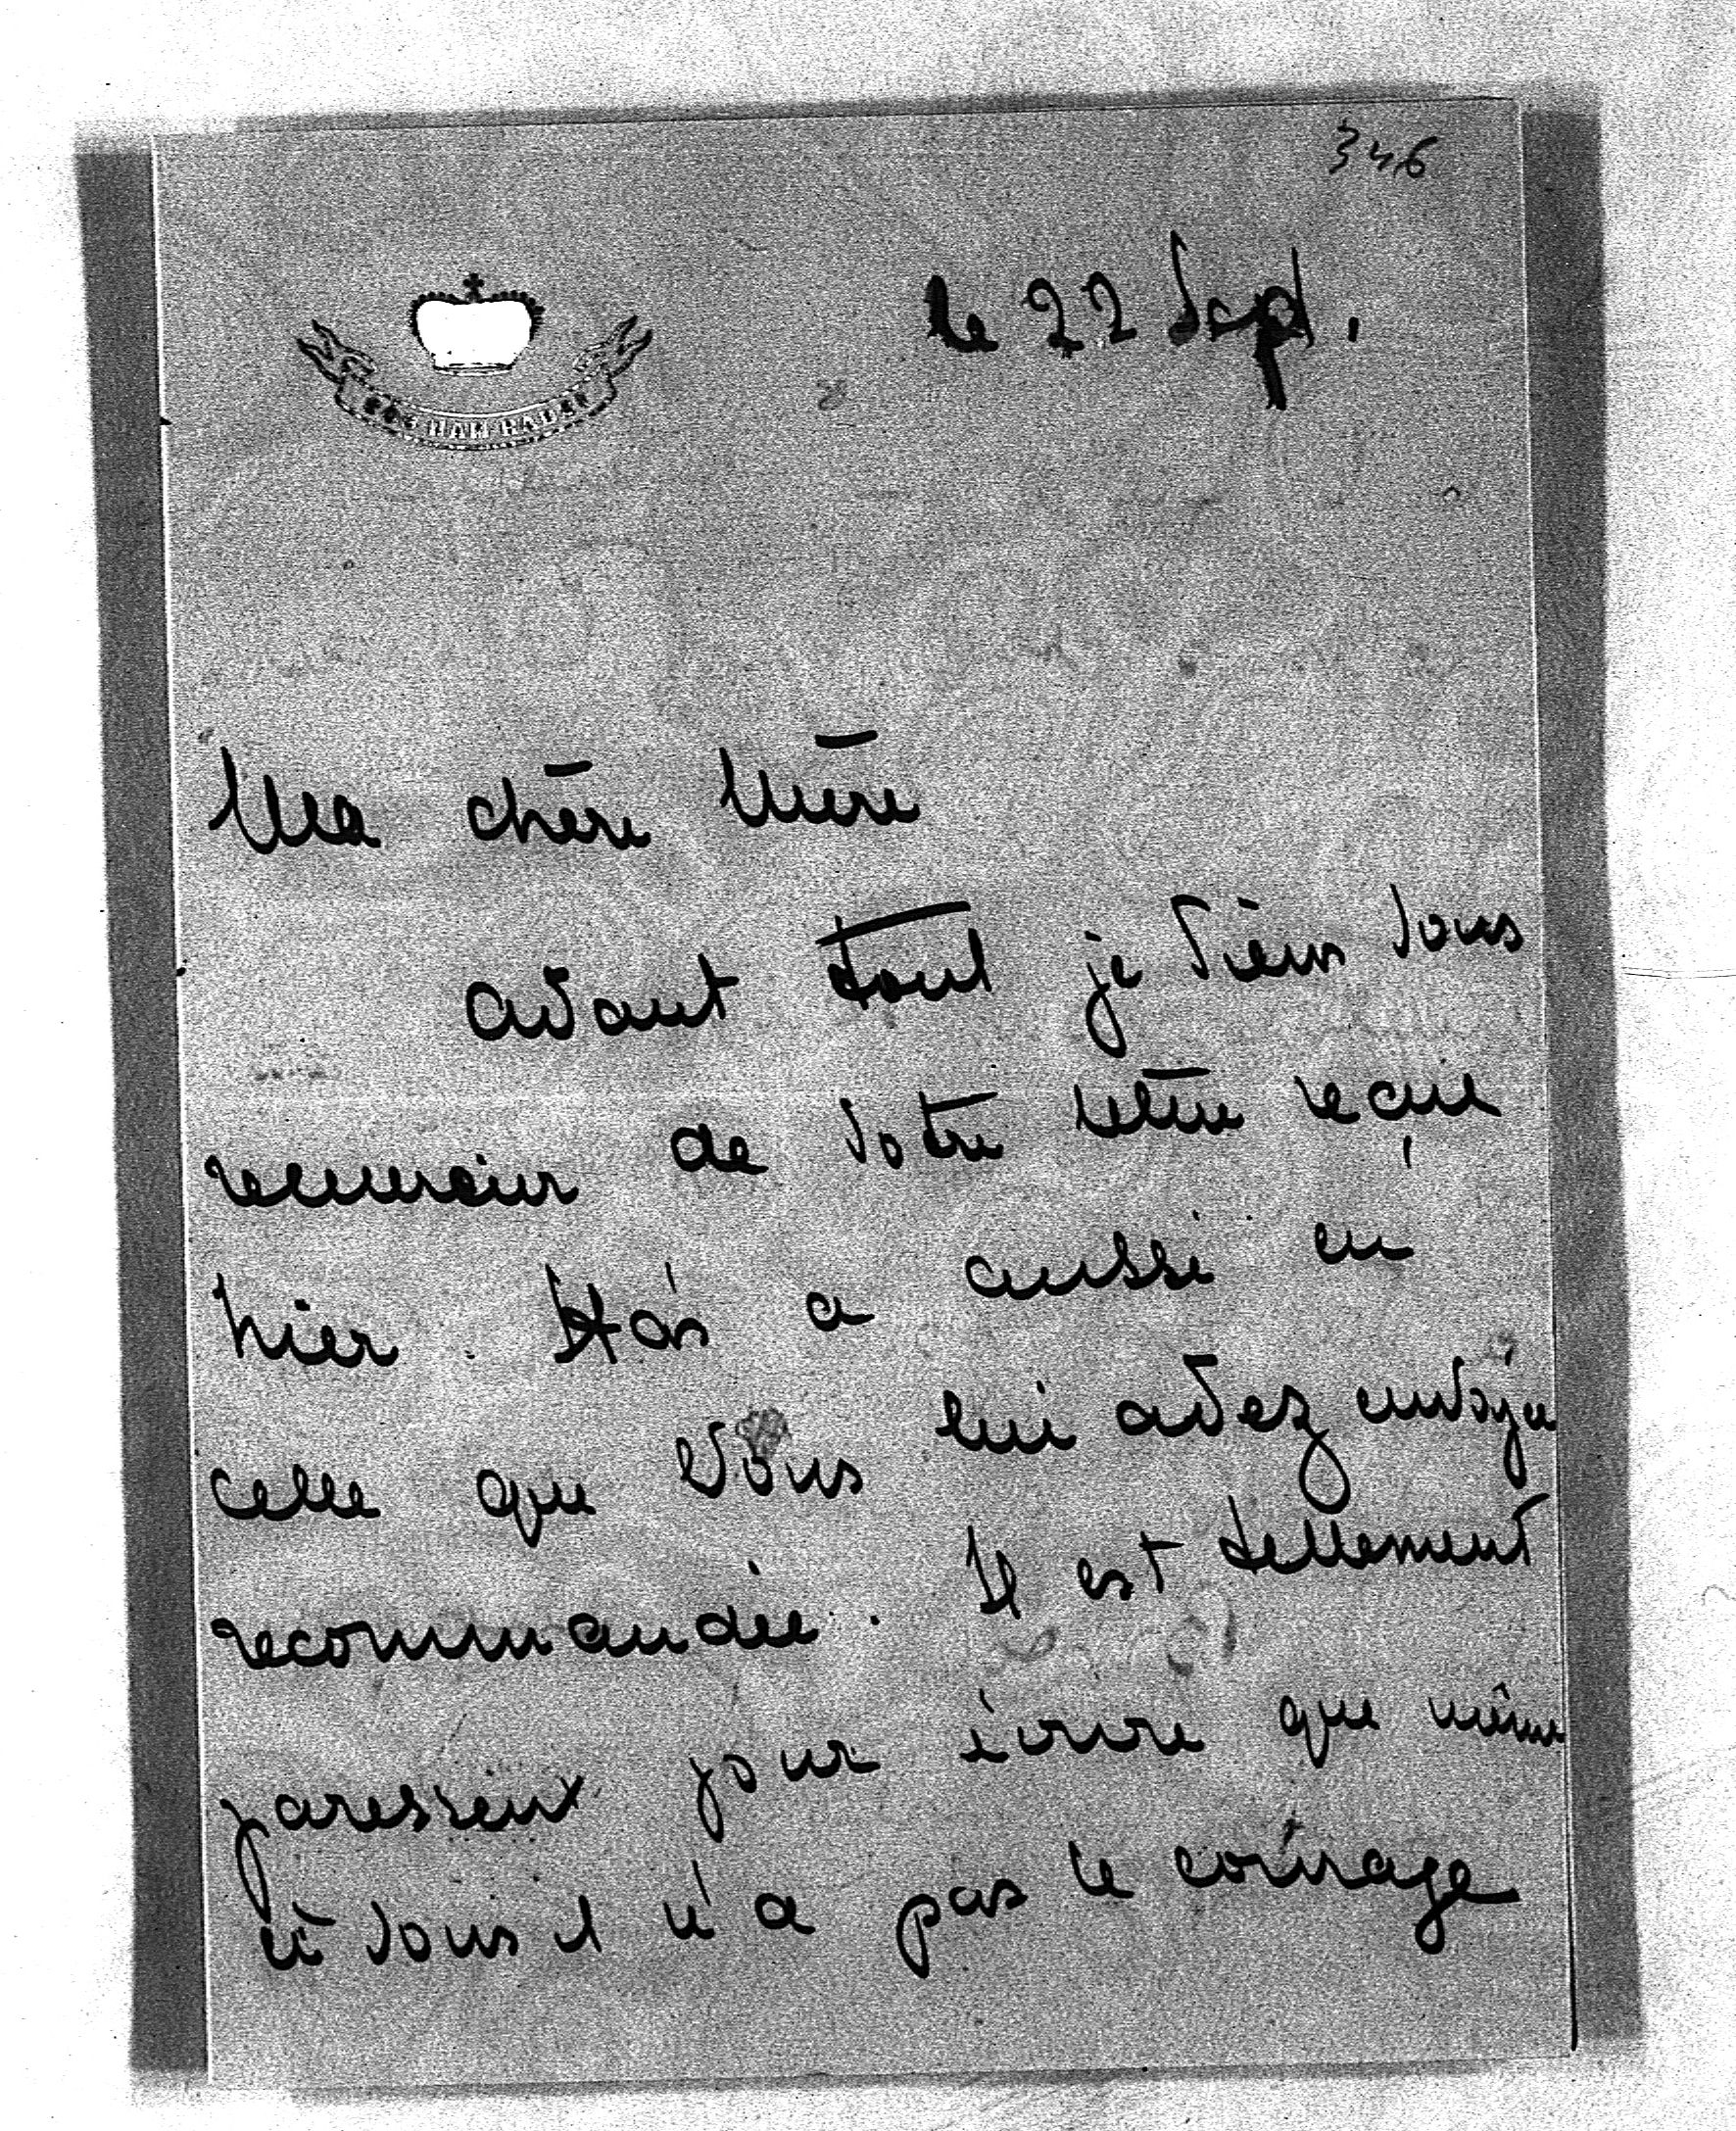 346
le 22 Sept.
BÓG NAM RADZI
Ma chère Mère
avant tout je viens vous
remercier de votre lettre reçue
hier. Staś a aussi eu
celle que Vous lui avez envoyé
recommandée. Il est tellement
paresseux pour écrire que même
à vous il n'a pas le courage